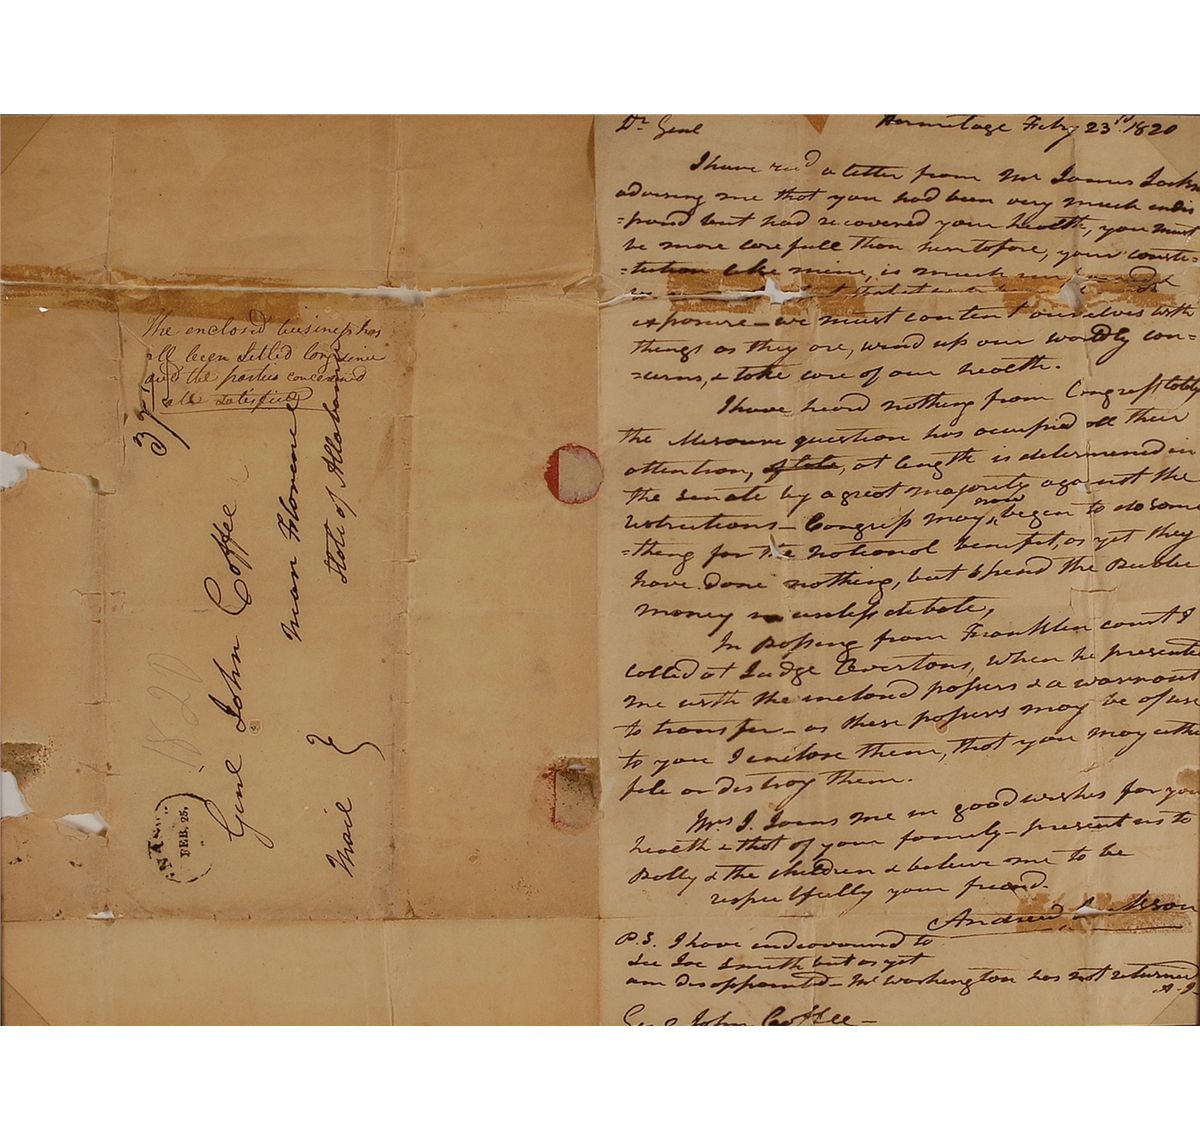 The enclosed business has
all been settled long since
and the parties concerned
all satisfied
37
Genl John Coffee
near Florence
State of Allabama
Mail
1820
NAS
FEB. 25.
Dr Genl
Hermitage Febry 23rd 1820
I have recd a letter from Mr James Jackn
advising me that you had been very much indis
=posed but had recovered your health, you must
be more carefull than heretofore, your consti=
=tution like mine, is much
exposure - we must content ourselves with
things as they are, wind up our worldly con=
=cerns, & take care of our health.
I have heard nothing from Congress lately
the Missouri question has occupied all their
attention, of late, at length is determined in
the Senate by a great majority against the
restrictions - Congress may now begin to do some
=thing for the national benefit, as yet they
have done nothing, but spend the Public
money in useless debate,
In passing from Franklin court I
called at Judge Overtons, when he presented
me with the inclosed papers & a warrant
to transfer - as these papers may be of use
to you I enclose them, that you may either
file or destroy them.
Mrs J. Joins me in good wishes for your
health & that of your family - present us to
Polly & the children & believe me to be
respectfully your friend.
Andrew Jackson
P.S. I have endeavoured to
see Joe Smith but as yet
am disappointed - Mr Washington has not returned
A. J-
Genl John Coffee -